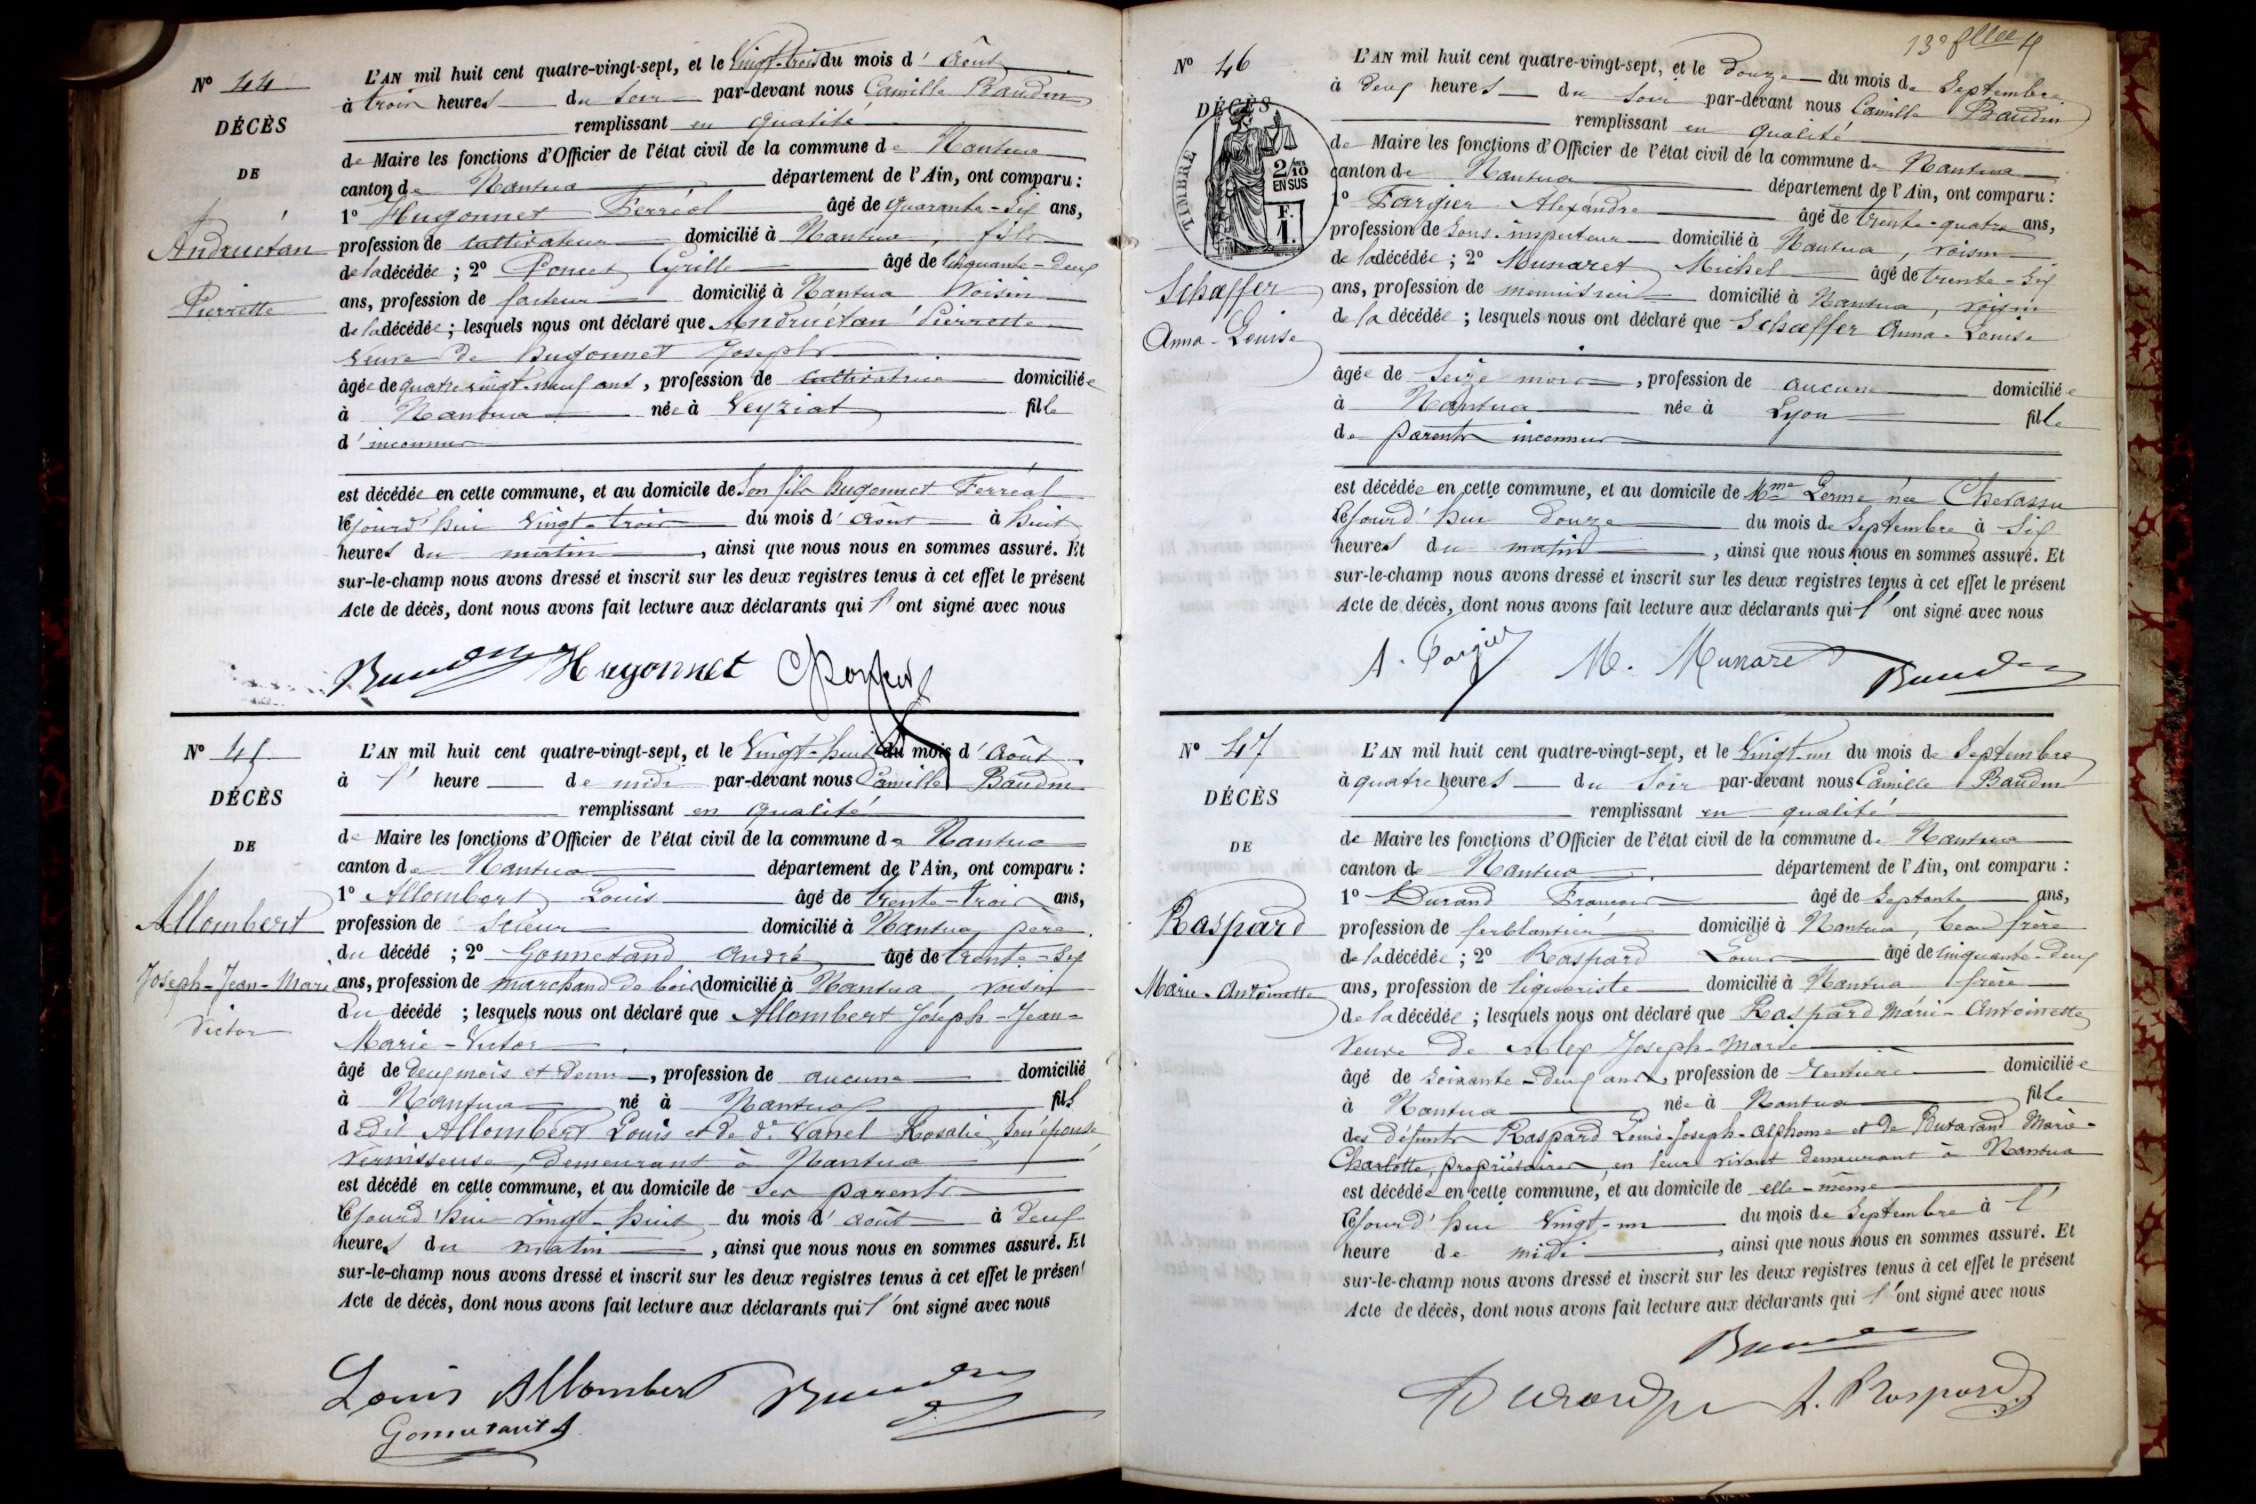 N° 44
DÉCÈS
DE
Andruétan
Pierrette
L'AN mil huit cent quatre-vingt-sept, et le Vingt-trois du mois d'Août
à trois heures du soir par-devant nous Camille Baudin
remplissant en qualité
de Maire les fonctions d'Officier de l'état civil de la commune de Nantua
canton de Nantua département de l'Ain, ont comparu :
1° Hugonnet Ferréol âgé de quarante-six ans,
profession de cultivateur domicilié à Nantua, fils
de la décédée ; 2° Poncet Cyrille âgé de Cinquante-deux
ans, profession de facteur domicilié à Nantua Voisin
de la décédée ; lesquels nous ont déclaré que Andruétan Pierrette
veuve de Hugonnet Joseph
âgée de quatre vingt-neuf ans, profession de cultivatrice domiciliée
à Nantua née à Veyziat fille
d'inconnus
est décédée en cette commune, et au domicile de Son fils hugonnet Ferréol
lejourd'hui vingt-trois du mois d'Août à huit
heures du matin, ainsi que nous nous en sommes assuré. Et
sur-le-champ nous avons dressé et inscrit sur les deux registres tenus à cet effet le présent
Acte de décès, dont nous avons fait lecture aux déclarants qui l'ont signé avec nous
Baudin Hugonnet CPoncet
N° 45
DÉCÈS
DE
Allombert
Joseph-Jean-Marie
Victor
L'AN mil huit cent quatre-vingt-sept, et le Vingt-huit du mois d'Août
à l'heure de midi par-devant nous Camille Baudin
remplissant en qualité
de Maire les fonctions d'Officier de l'état civil de la commune de Nantua
canton de Nantua département de l'Ain, ont comparu :
1° Allombert Louis âgé de trente-trois ans,
profession de Scieur domicilié à Nantua, père
du décédé ; 2° Gonnetand André âgé de trente-six
ans, profession de marchand de bois domicilié à Nantua, voisin
du décédé ; lesquels nous ont déclaré que Allombert Joseph-Jean-
Marie-Victor
âgé de deux mois et demi, profession de aucune domicilié
à Nantua né à Nantua fils
dedit Allombert Louis et de de Vanel Rosalie, son épouse
Vernisseuse, demeurant à Nantua
est décédé en cette commune, et au domicile de Ses parents
lejourd'hui vingt-huit du mois d'août à deux
heures du matin, ainsi que nous nous en sommes assuré. Et
sur-le-champ nous avons dressé et inscrit sur les deux registres tenus à cet effet le présent
Acte de décès, dont nous avons fait lecture aux déclarants qui l'ont signé avec nous
Louis Allombert Baudin
Gonnetand A
13e
N° 46
DÉCÈS
TIMBRE
2/10 EN SUS
F. 1.
Schæffer
Anna-Louise
L'AN mil huit cent quatre-vingt-sept, et le douze du mois de Septembre
à deux heures du soir par-devant nous Camille Baudin
remplissant en qualité
de Maire les fonctions d'Officier de l'état civil de la commune de Nantua
canton de Nantua département de l'Ain, ont comparu :
1° Fargier Alexandre âgé de trente-quatre ans,
profession de Sous-inspecteur domicilié à Nantua, voisin
de la décédée ; 2° Munaret Michel âgé de trente-six
ans, profession de menuisier domicilié à Nantua, voisin
de la décédée ; lesquels nous ont déclaré que Schæffer Anna-Louise
âgée de Seize mois, profession de aucune domiciliée
à Nantua née à Lyon fille
de parents inconnus
est décédée en cette commune, et au domicile de Mme née Chevassu
lejourd'hui douze du mois de Septembre à six
heures du matin, ainsi que nous nous en sommes assuré. Et
sur-le-champ nous avons dressé et inscrit sur les deux registres tenus à cet effet le présent
Acte de décès, dont nous avons fait lecture aux déclarants qui l'ont signé avec nous
A. Fargier M. Munaret Baudin
N° 47
DÉCÈS
DE
Raspard
Marie-Antoinette
L'AN mil huit cent quatre-vingt-sept, et le Vingt-un du mois de Septembre
à quatre heures du Soir par-devant nous Camille Baudin
remplissant en qualité
de Maire les fonctions d'Officier de l'état civil de la commune de Nantua
canton de Nantua département de l'Ain, ont comparu :
1° Durand François âgé de Septante ans,
profession de ferblantier domicilié à Nantua, beau frère
de la décédée ; 2° Raspard Louis âgé de cinquante-deux
ans, profession de liquoriste domicilié à Nantua frère
de la décédée ; lesquels nous ont déclaré que Raspard Marie-Antoinette
Veuve de Joseph-Marie
âgé de Soixante-deux ans, profession de Rentière domiciliée
à Nantua née à Nantua fille
des défunts Raspard Louis-Joseph-Alphonse et de Butavand Marie-
Charlotte, propriétaires, en leur vivant demeurant à Nantua
est décédée en cette commune, et au domicile de elle-même
lejourd'hui Vingt-un du mois de Septembre à l'
heure de midi, ainsi que nous nous en sommes assuré. Et
sur-le-champ nous avons dressé et inscrit sur les deux registres tenus à cet effet le présent
Acte de décès, dont nous avons fait lecture aux déclarants qui l'ont signé avec nous
Baudin
Durand L. Raspard